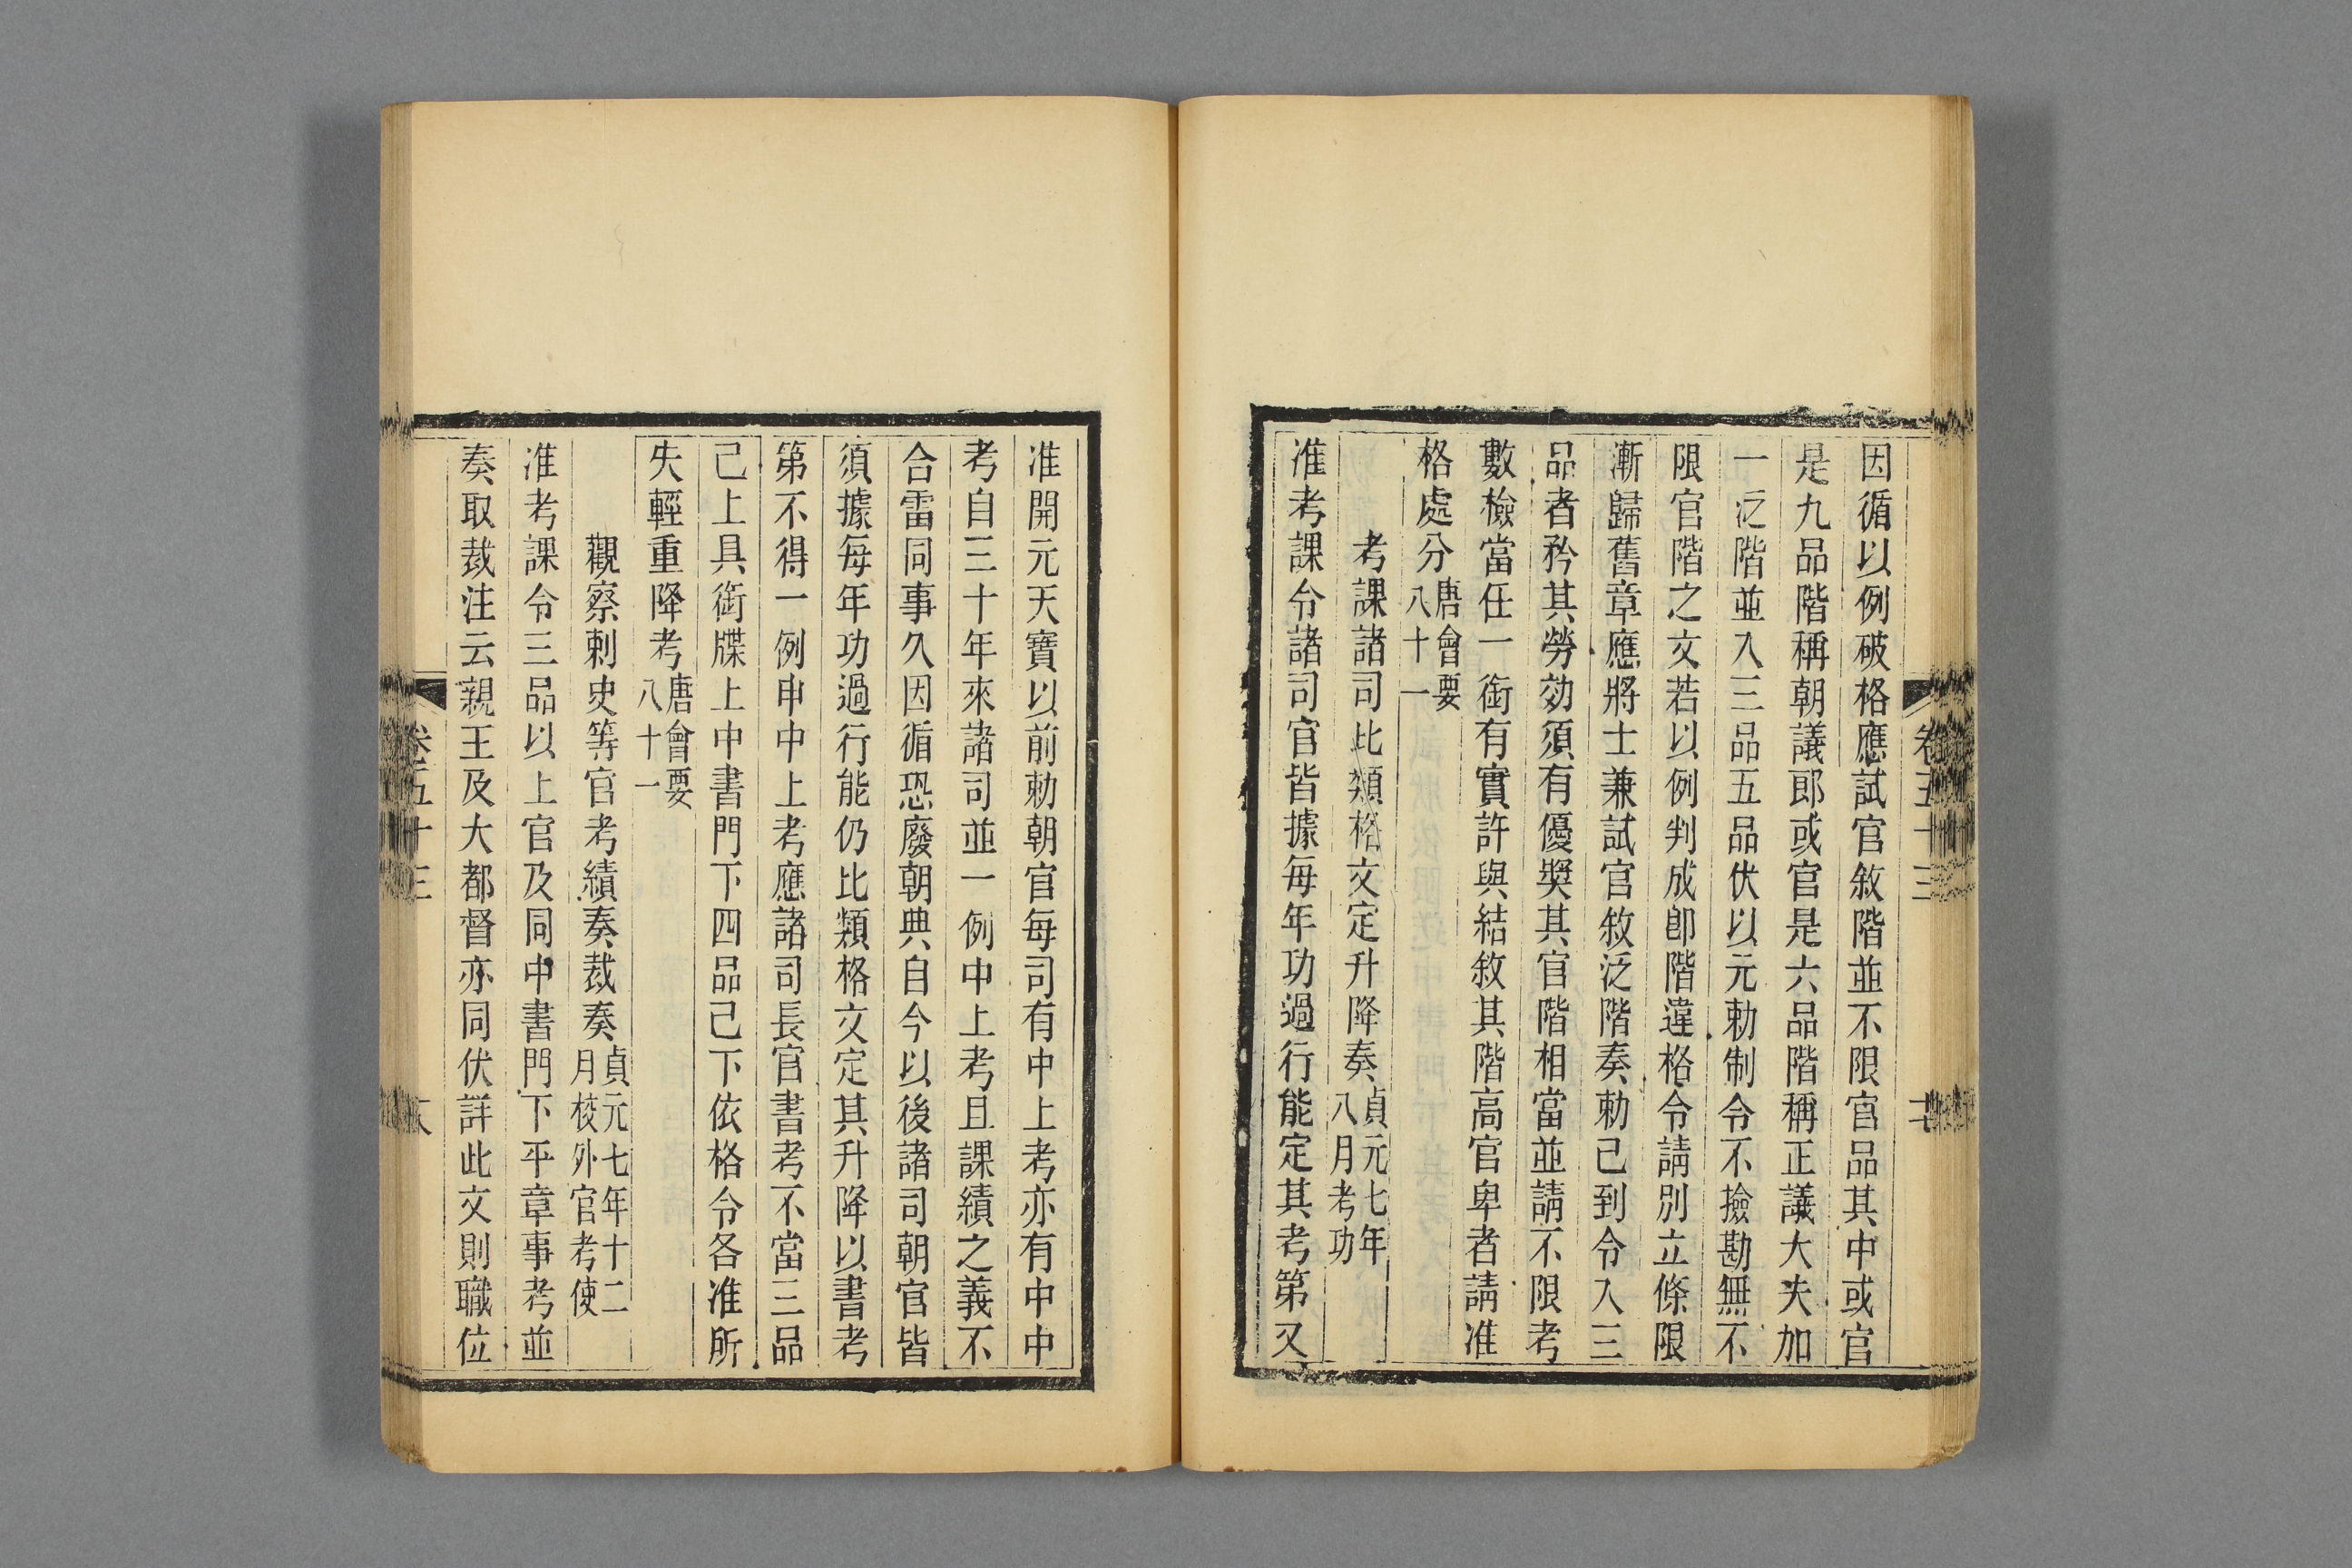 因循以例破格應試官敘階並不限官品其中或官
是九品階稱朝議郎或官是六品階稱正議大夫加
一泛階並入三品五品伏以元勅制令不撿勘無不
限官階之文若以例判成卽階違格令請別立條限
漸歸舊章應將士兼試官敘泛階奏勅已到令入三
品者矜其勞効須有優獎其官階相當並請不限考
數檢當任一銜有實許與結敘其階高官卑者請准
格處分唐會要八十一
考課諸司比類格文定升降奏貞元七年八月考功
准考課令諸司官皆據每年功過行能定其考第又
卷五十三
准開元天寶以前勅朝官每司有中上考亦有中中
考自三十年來諸司並一例中上考且課績之義不
合雷同事久因循恐廢朝典自今以後諸司朝官皆
須據每年功過行能仍比類格文定其升降以書考
第不得一例申中上考應諸司長官書考不當三品
已上具銜牒上中書門下四品已下依格令各准所
失輕重降考唐會要八十一
觀察刺史等官考績奏裁奏貞元七年十二月校外官考使
准考課令三品以上官及同中書門下平章事考並
奏取裁注云親王及大都督亦同伏詳此文則職位
卷五十三